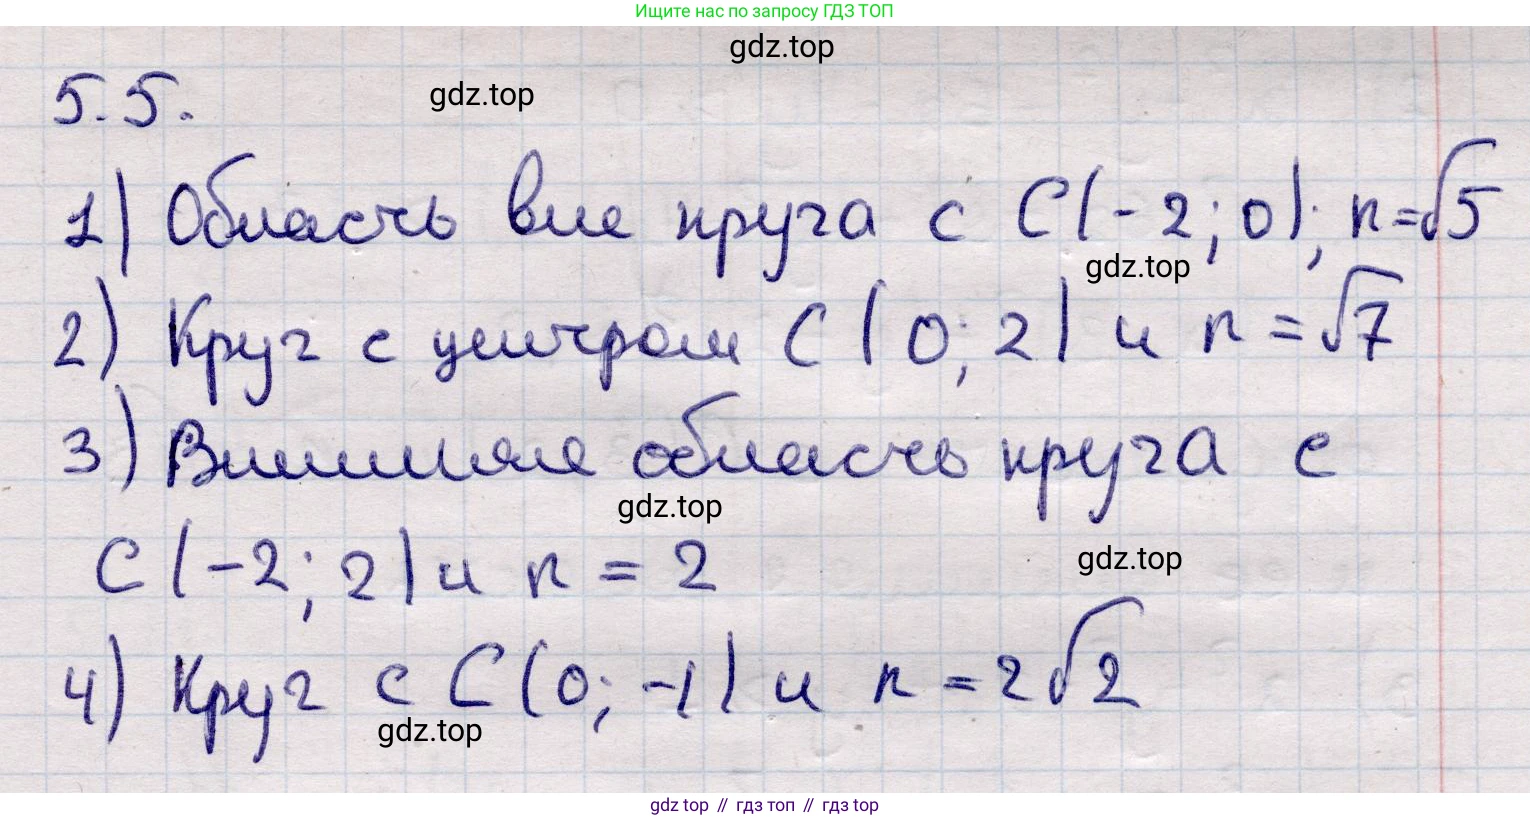 Ищите нас по запросу ГДЗ ТОП
gdz.top
5.5.
gdz.top
1) Область вне круга с C(-2; 0); r=√5
gdz.top
2) Круг с центром C(0; 2) и r=√7
3) Внешняя область круга с
gdz.top
C(-2; 2) и r = 2
gdz.top
4) Круг с C(0; -1) и r = 2√2
gdz.top
gdz top // гдз топ // гдз top